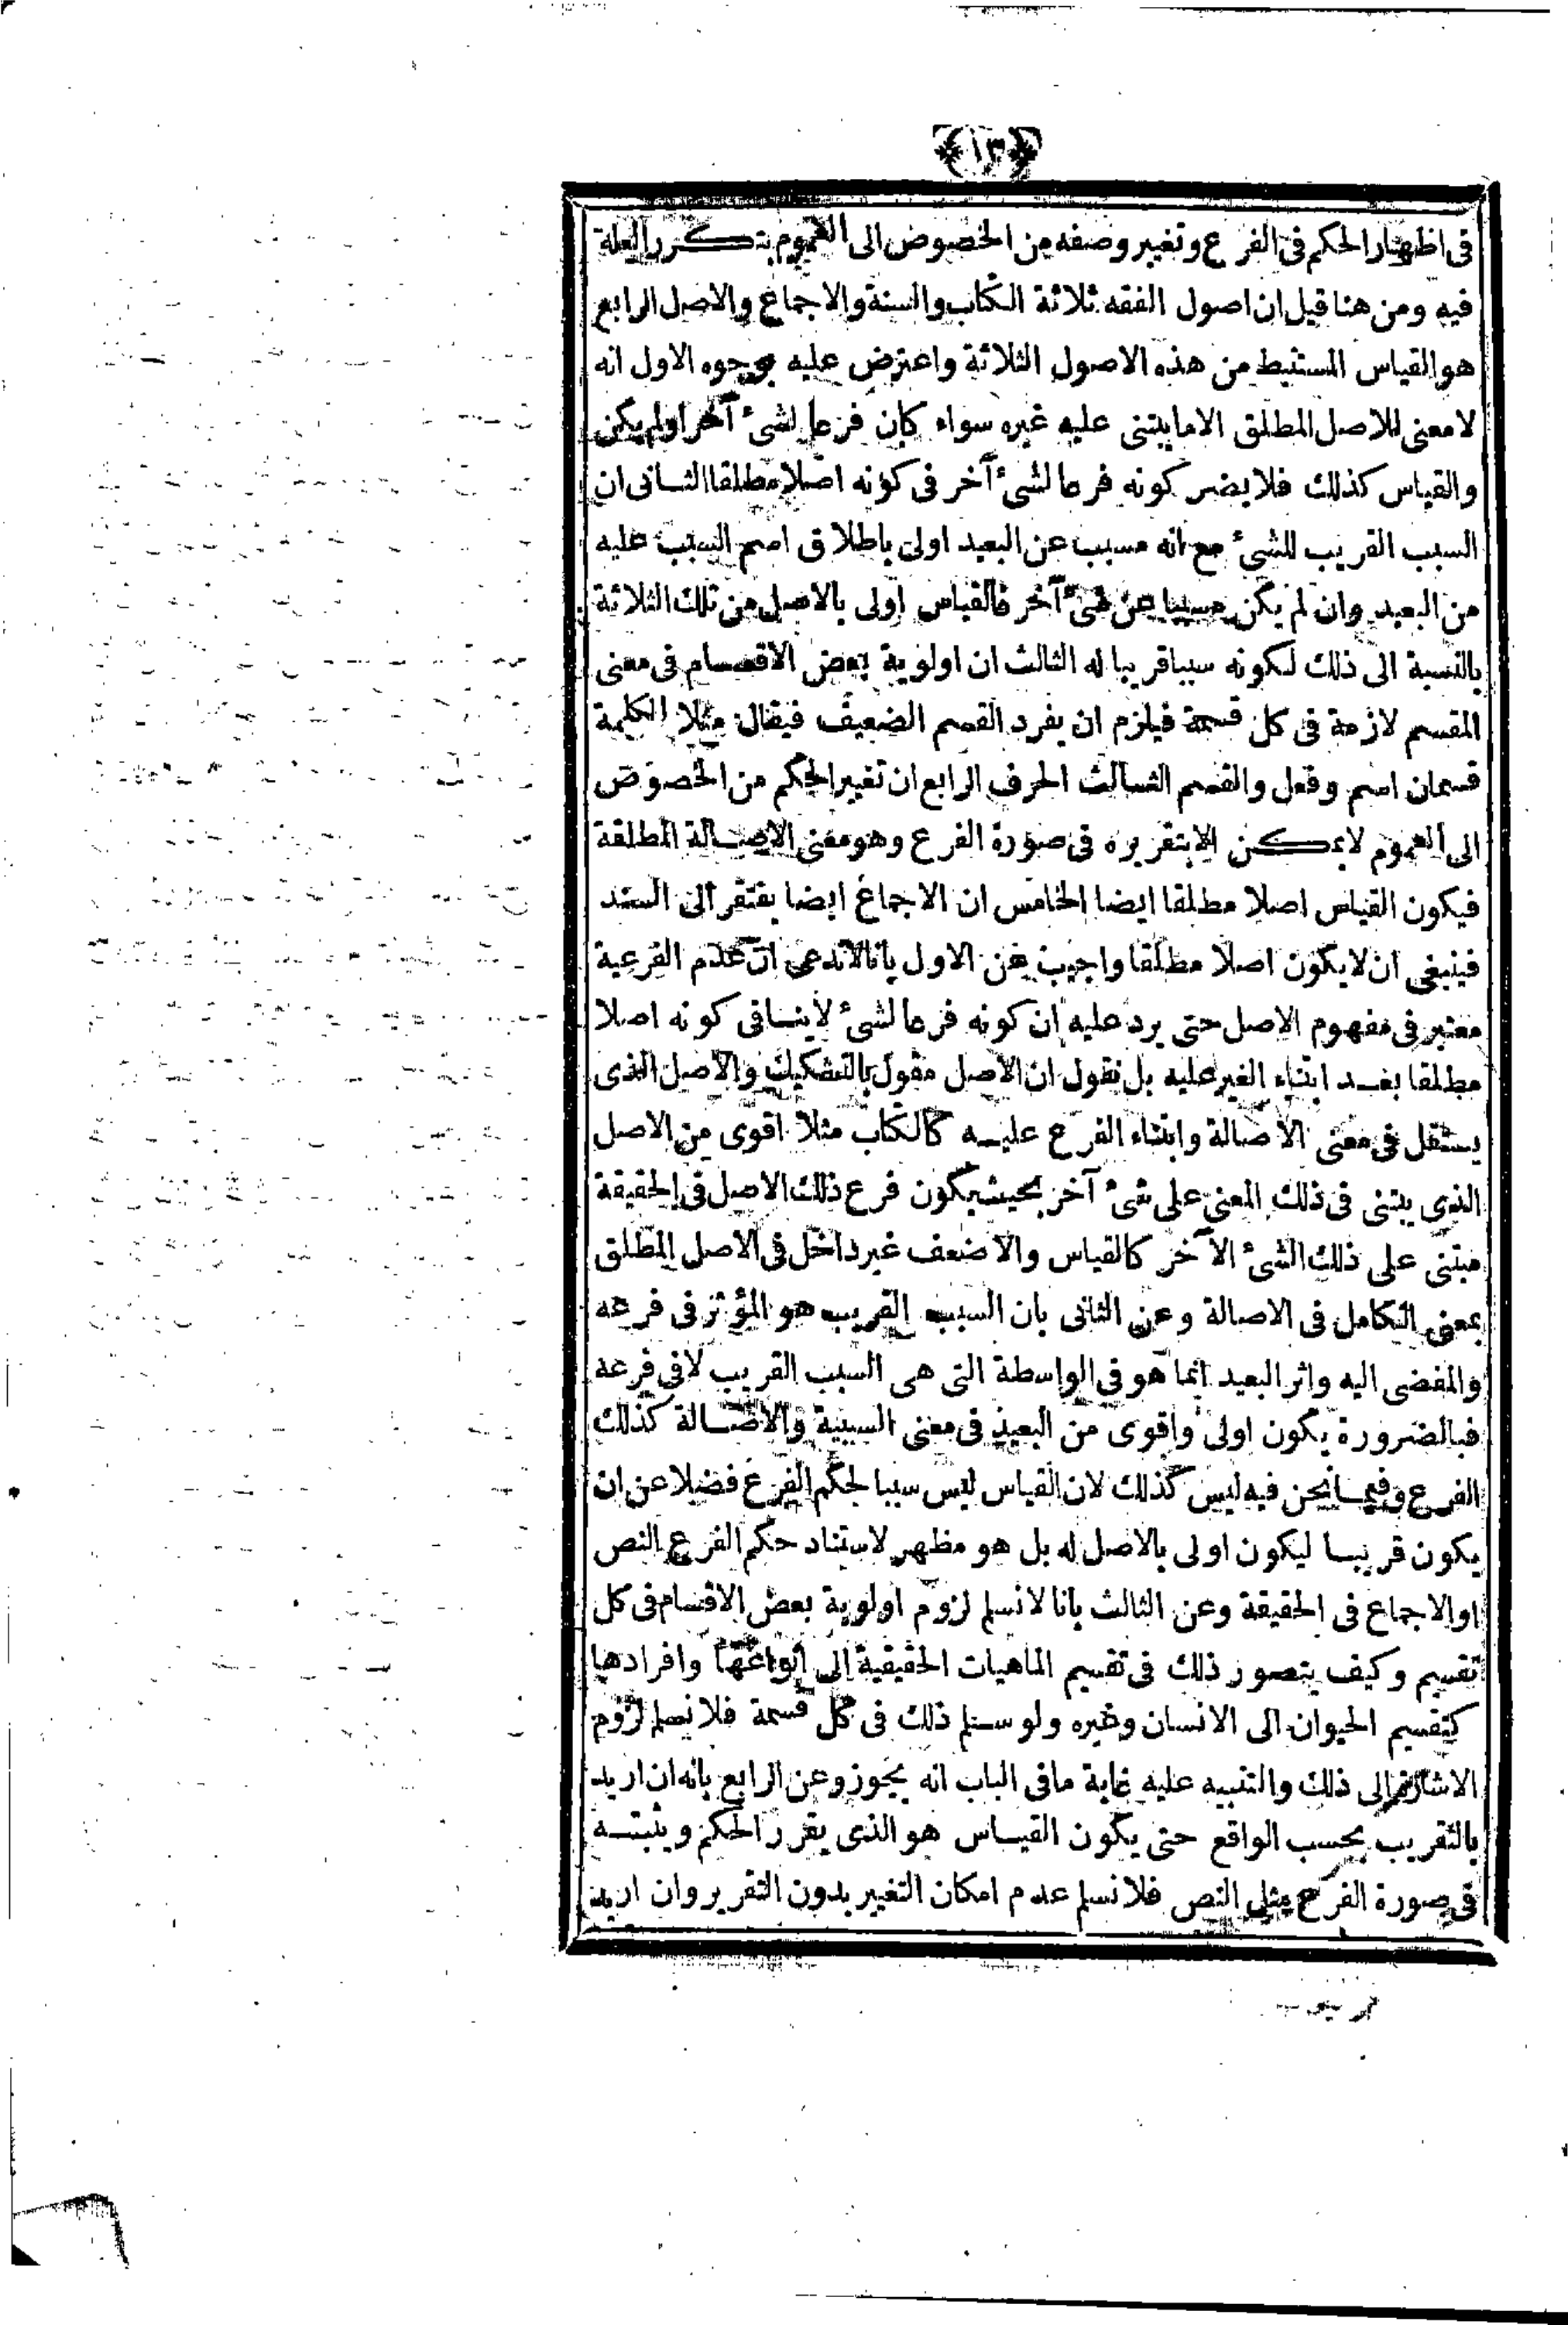 ﴿١٣﴾
فى اظهار الحكم فى الفرع وتغيير وصفه من الخصوص الى العموم بتكرر العلة
فيه ومن هنا قيل ان اصول الفقه ثلاثة الكتاب والسنة والاجماع والاصل الرابع
هو القياس المستنبط من هذه الاصول الثلاثة واعترض عليه بوجوه الاول انه
لا معنى للاصل المطلق الا ما يبتنى عليه غيره سواء كان فرعا لشئ آخر اولم يكن
والقياس كذلك فلا يضر كونه فرعا لشئ آخر فى كونه اصلا مطلقا الثانى ان
السبب القريب للشئ مع انه مسبب عن البعيد اولى باطلاق اسم السبب عليه
من البعيد وان لم يكن مسببا عن شئ آخر فالقياس اولى بالاصل من تلك الثلاثة
بالنسبة الى ذلك لكونه سببا قريبا له الثالث ان اولوية بعض الاقسام فى معنى
المقسم لازمة فى كل قسمة فيلزم ان يفرد القسم الضعيف فيقال مثلا الكلمة
قسمان اسم وفعل والقسم الثالث الحرف الرابع ان تغيير الحكم من الخصوص
الى العموم لا يمكن الا بتقريره فى صورة الفرع وهو معنى الاصالة المطلقة
فيكون القياس اصلا مطلقا ايضا الخامس ان الاجماع ايضا يفتقر الى السند
فينبغى ان لا يكون اصلا مطلقا واجيب عن الاول بانا لا ندعى ان عدم الفرعية
معتبر فى مفهوم الاصل حتى يرد عليه ان كونه فرعا لشئ لا ينافى كونه اصلا
مطلقا بعد ابتناء الغير عليه بل نقول ان الاصل مقول بالتشكيك والاصل الذى
يستقل فى معنى الاصالة وابتناء الفرع عليه كالكتاب مثلا اقوى من الاصل
الذى يبتنى فى ذلك المعنى على شئ آخر بحيث يكون فرع ذلك الاصل فى الحقيقة
مبتنى على ذلك الشئ الآخر كالقياس والاضعف غير داخل فى الاصل المطلق
بمعنى التكامل فى الاصالة وعن الثانى بان السبب القريب هو المؤثر فى فرعه
والمفضى اليه واثر البعيد انما هو فى الواسطة التى هى السبب القريب لا فى فرعه
فبالضرورة يكون اولى واقوى من البعيد فى معنى السببية والاصالة كذلك
الفرع وفيما نحن فيه ليس كذلك لان القياس ليس سببا لحكم الفرع فضلا عن ان
يكون قريبا ليكون اولى بالاصل له بل هو مظهر لاستناد حكم الفرع النص
او الاجماع فى الحقيقة وعن الثالث بانا لا نسلم لزوم اولوية بعض الاقسام فى كل
تقسيم وكيف يتصور ذلك فى تقسيم الماهيات الحقيقية الى انواعها وافرادها
كتقسيم الحيوان الى الانسان وغيره ولو سلم ذلك فى كل قسمة فلا نسلم لزوم
الاشارة الى ذلك والتنبيه عليه غاية مافى الباب انه يجوز وعن الرابع بانه ان اريد
بالتقريب بحسب الواقع حتى يكون القياس هو الذى يقرر الحكم ويثبته
فى صورة الفرع مثل النص فلا نسلم عدم امكان التغيير بدون التقرير وان اريد